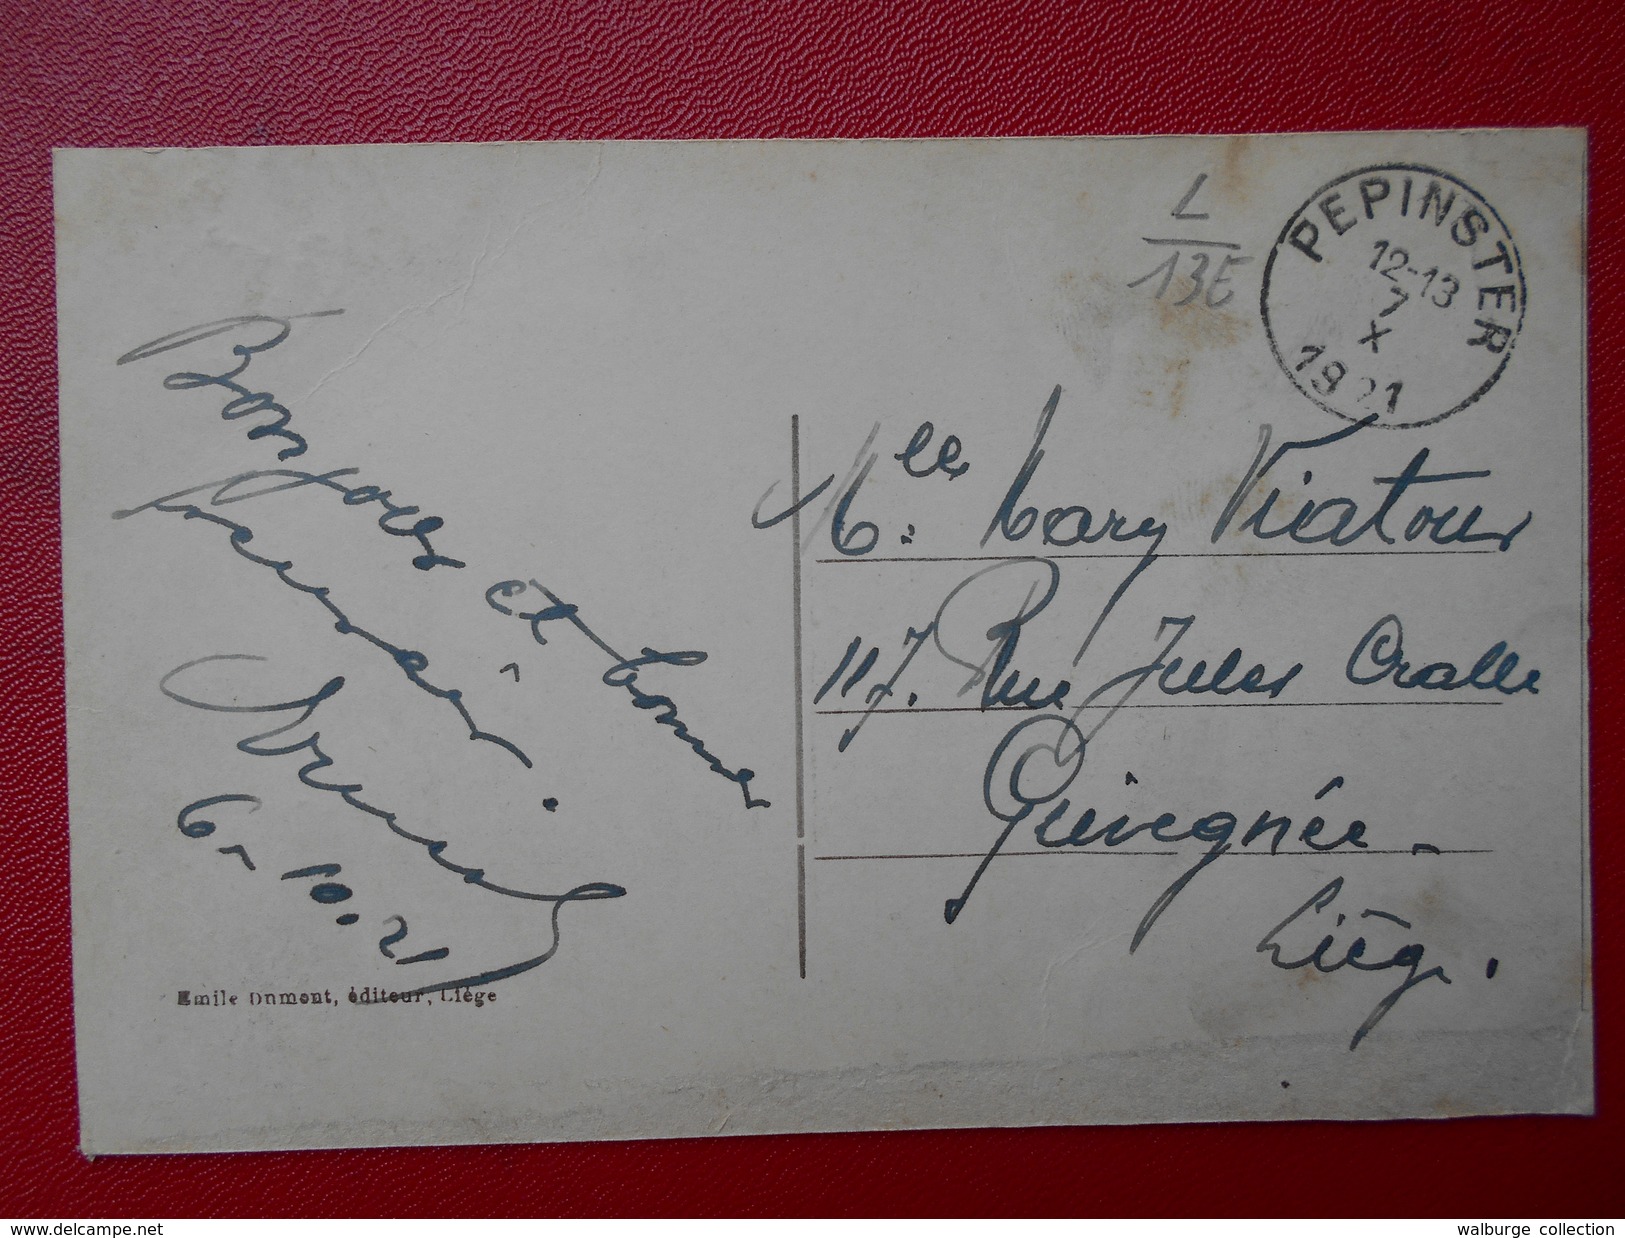 PEPINSTER
12-13
7
X
1921
L
13E
Bonjour et bonnes
6-10.21
Emile Dumont, éditeur, Liège
Mlle. Mary Viatour
117. Rue Jules Cralle
Grivegnée-
Liége.
delcampe.net
walburge collection